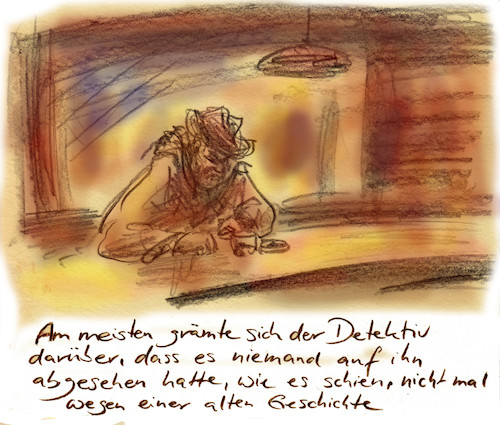 Am meisten grämte sich der Detektiv
darüber, dass es niemand auf ihn
abgesehen hatte, wie es schien, nicht mal
wegen einer alten Geschichte